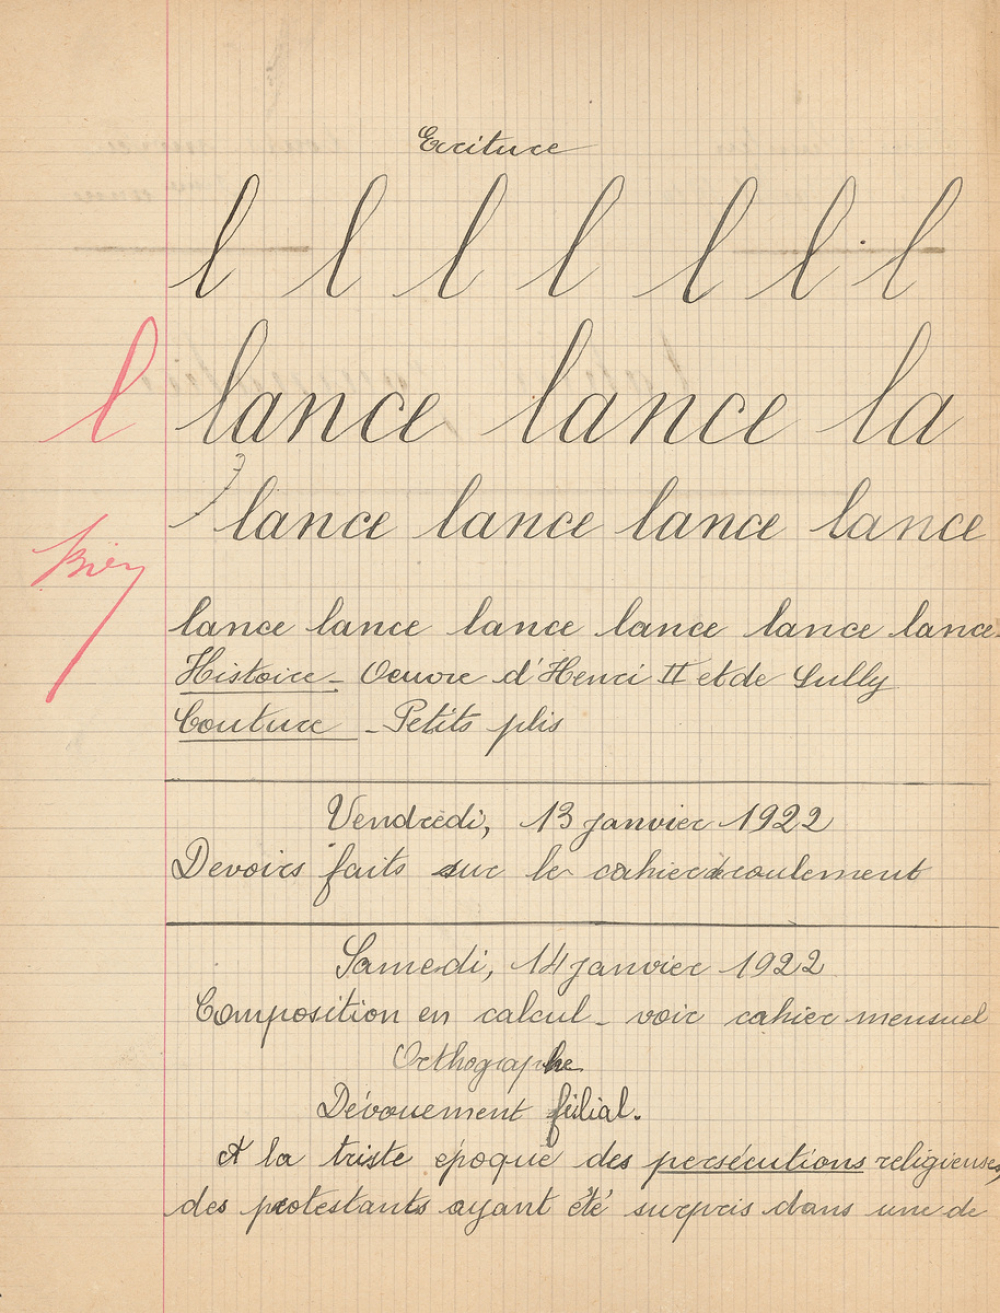 Ecriture
l l l l l l l
l lance lance la
lance lance lance lance
Bien
lance lance lance lance lance lance
Histoire - Oeuvre d'Henri II et de Sully
Couture - Petits plis
Vendredi, 13 janvier 1922
Devoirs faits sur le cahier de roulement
Samedi, 14 janvier 1922
Composition en calcul - voir cahier mensuel
Orthographe
Dévouement filial.
A la triste époque des persécutions religieuses,
des protestants ayant été surpris dans une de